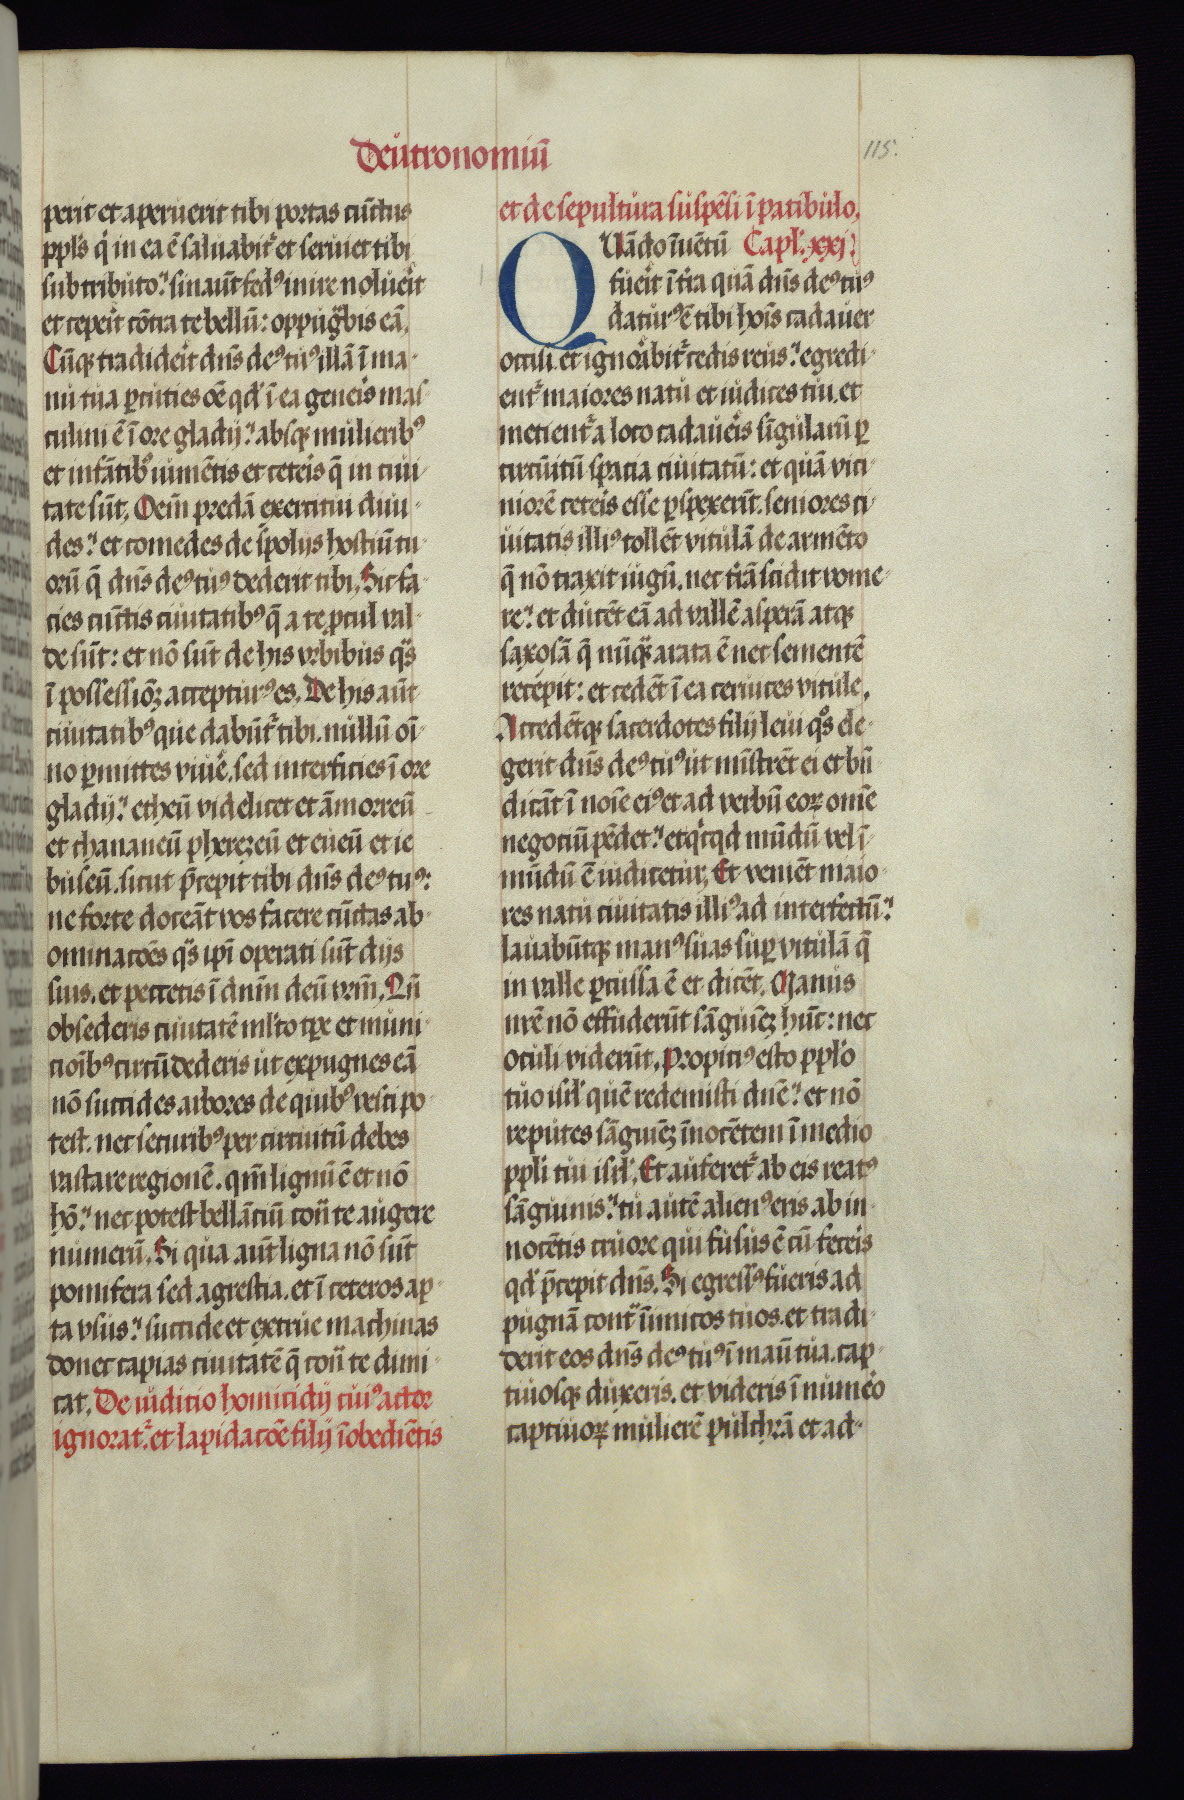 Deutronomiū
115.
perit et aperuerit tibi portas cūctus
ppl's q' in ea ē saluabit᷑ et seruiet tibi
sub tributo. sin aūt fedꝰ inire noluerīt
et ceperīt cōtra te bellū: oppugᵃbis eā.
Cūqꝫ tradiderit dn̄s deꝰ tuꝰ illā ī ma-
nu tua ꝑcuties oē qd' ī ea gen̄eis mas
culini ē ī ore gladij. absqꝫ mulieribꝰ
et infātibꝰ iumētis et ceteīs q̄ in ciui-
tate sūt. Oēm predā exercitui diui-
des. et comedes de spolijs hostiū tu-
orū q̄ dn̄s deꝰ tuꝰ dederit tibi. Sic fa-
cies cūctis ciuitatibꝰ q̄ a te ꝓcul val-
de sūt: et nō sūt de his vrbibus qᵃs
ī possessiōꝫ acceptur̄ꝰ es. De his aūt
ciuitatibꝰ que dabūt᷑ tibi. nullū oī-
no ꝑmittes viuē. sed interficies ī ore
gladij. etheū videlicet et āmorreū
et chananeū pherezeū et eueū et ie
buseū. sicut p̄cepit tibi dn̄s deꝰ tuꝰ:
ne forte doceāt vos facere cūctas ab-
ominacōēs qᵃs ip̄i operati sūt dijs
suis. et peccetis ī dnm̄ deū vr̄m. Qn̄
obsederis ciuitatē ml'to tp̄e et muni-
cioībꝰ circūdederis ut expugnes eā
nō succides arbores de quibꝰ vesci po-
test. nec securibꝰ per circuitū debes
vastare regionē. qm̄ lignū ē et nō
hō. nec potest bellāciū contᵃ te augere
numerū. Si qua aūt ligna nō sūt
pomifera sed agrestia. et ī ceteros ap-
ta vsus. succide et extrue machinas
donec capias ciuitatē q̄ contᵃ te dimi-
cat. De iudicio homicidij cuiꝰ actor
ignorat᷑. et lapidacōē filij īobediētis
et de sepultura suspēsi ī patibulo.
QUādo īuētū Capl'. xxj
fuerit ī t̄ra quā dn̄s deꝰ tuꝰ
daturꝰ ē tibi hoīs cadauer
occisi. et ignorᵃbit᷑ cedis reus. egredi-
ent᷑ maiores natu et iudices tui. et
metient᷑ a loco cadaueīs sīgularū ꝑ
circūitū spacia ciuitatū: et quā vici-
niorē ceteīs esse ꝑspexerīt. seniores ci-
uitatis illiꝰ tollēt vitulā de armēto
q̄ nō traxit iugū. nec t̄rā scidit vome-
re. et ducēt eā ad vallē asperā atqꝫ
saxosā q̄ nūqᵃ arata ē nec sementē
recepit: et cedēt ī ea ceruices vitule.
Accedētqꝫ sacerdotes filij leui qᵒs ele-
gerit dn̄s deꝰ tuꝰ ut mīstrēt ei et bn̄
dicāt ī noīe eiꝰ et ad verbū eoꝝ omē
negociū pēdet. et q'cqd mūdū vel ī-
mūdū ē iudicetur. Et veniēt maio-
res natu ciuitatis illiꝰ ad interfectū.
lauabūtqꝫ manꝰ suas suꝑ vitulā q̄
in valle ꝑcussa ē et dicēt. Manus
nr̄e nō effuderūt sāguiēꝫ hūc: nec
oculi viderūt. Propiciꝰ esto ppl'o
tuo isrl' quē redemisti dn̄e. et nō
reputes sāguiēꝫ īnocētem ī medio
ppl'i tui isrl'. Et auferet᷑ ab eis reatꝰ
sāguinis. tu autē alienꝰ eris ab in-
nocētis cruore qui fusus ē cū feceīs
qd' p̄cepit dn̄s. Si egressꝰ fueris ad
pugnā contᵃ īimicos tuos. et tradi-
derit eos dn̄s deꝰ tuꝰ ī manū tua. cap-
tiuosqꝫ duxeris. et videris ī numēo
captiuoꝝ mulierē pulchrā et ad-